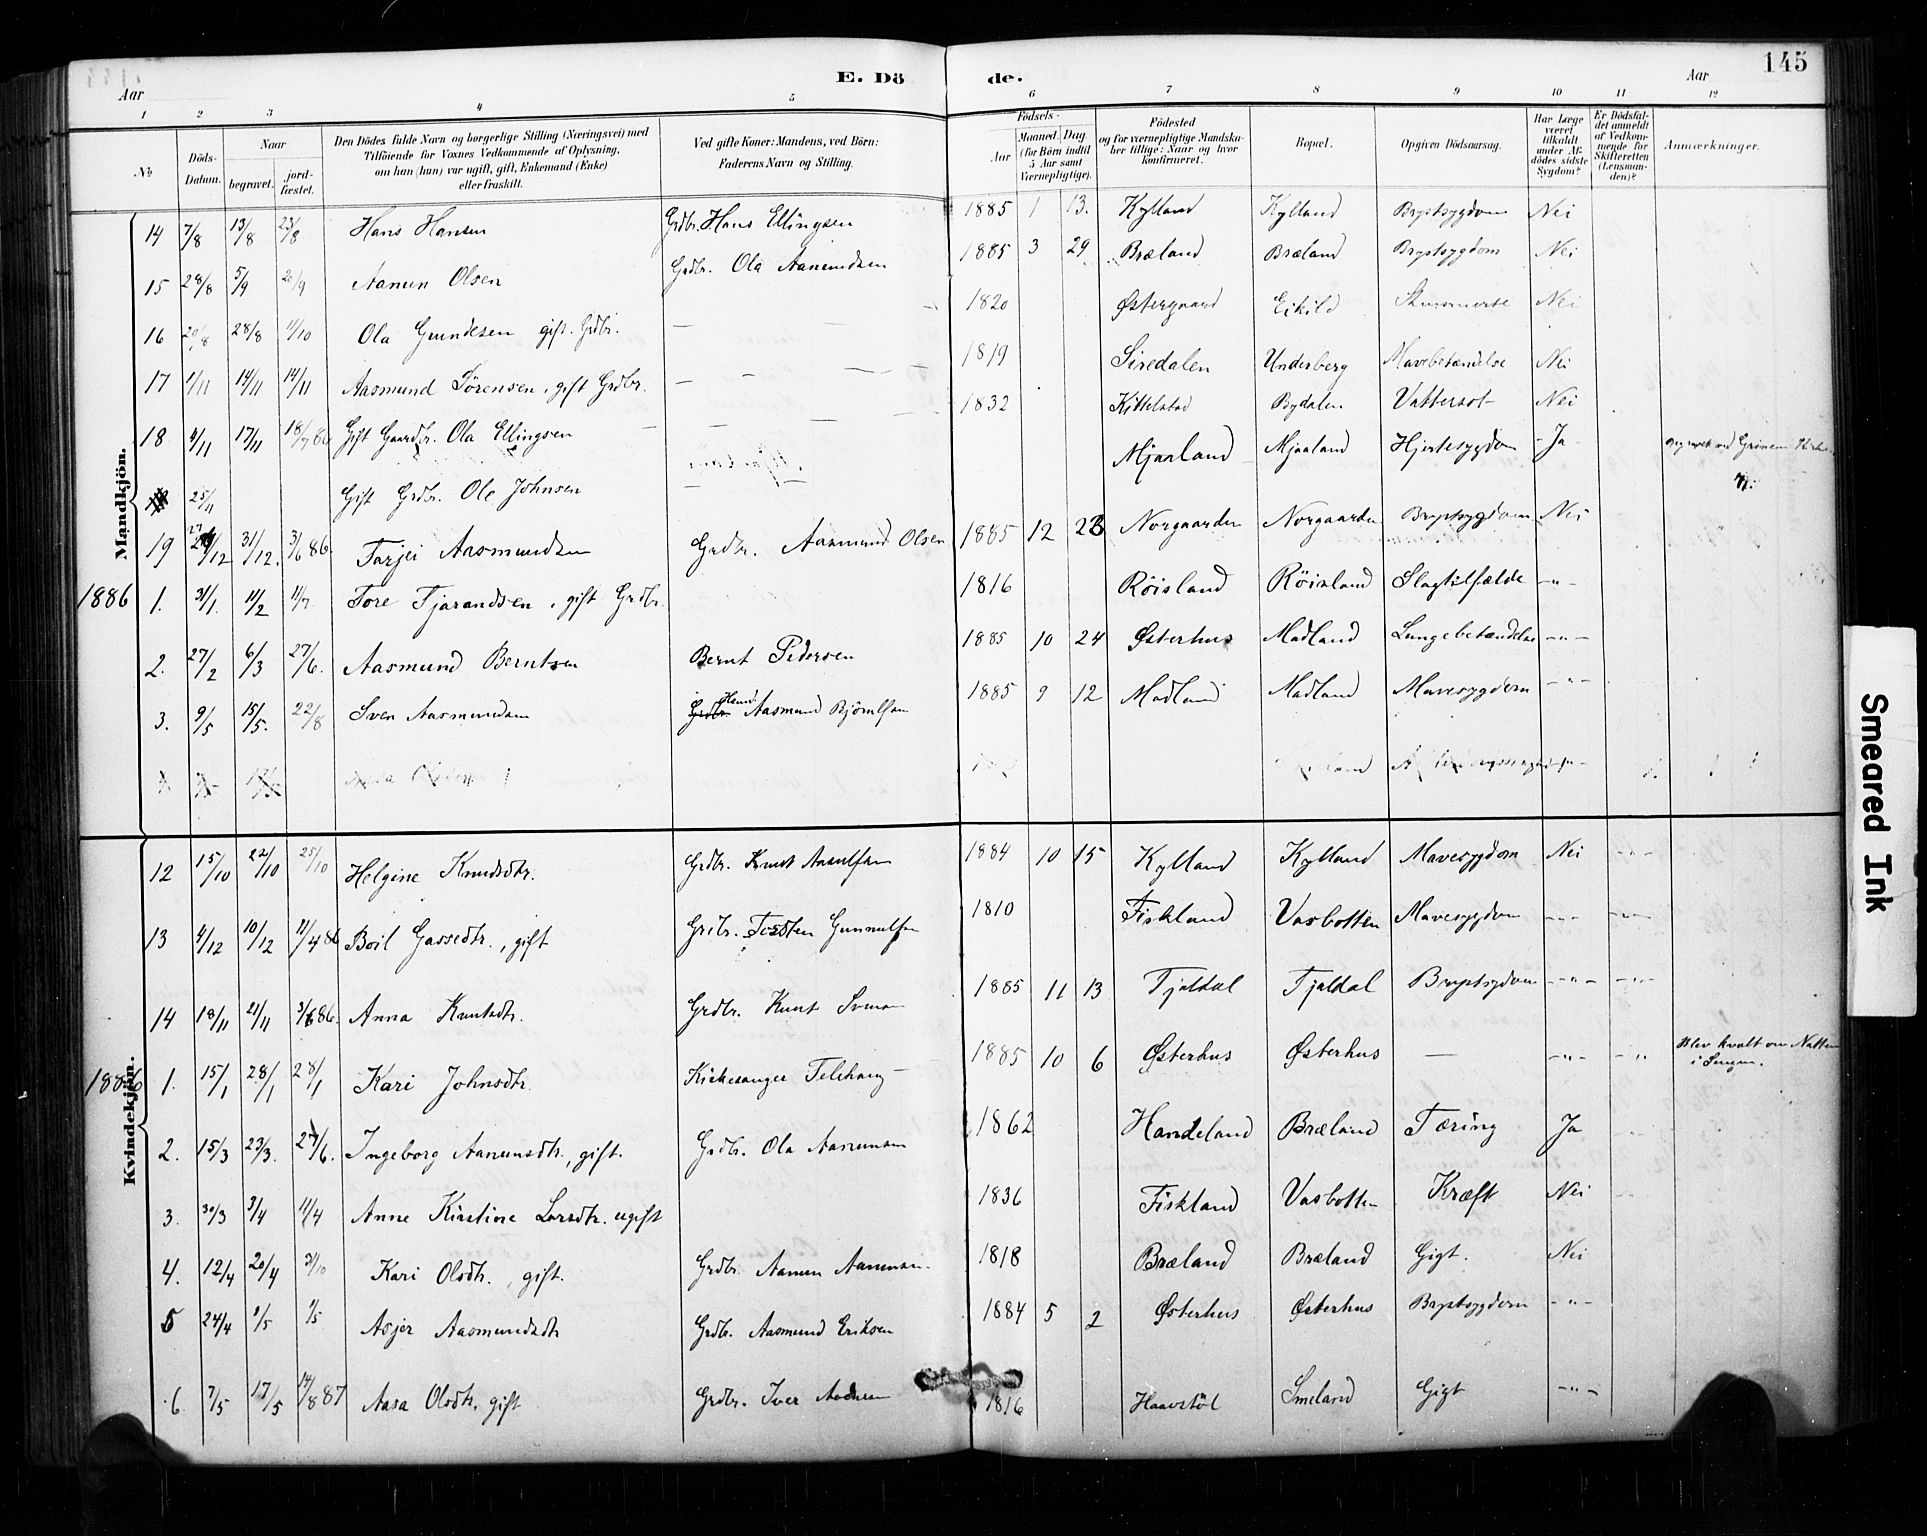 145
E. Dö de.
Aar Aar
1 2 3 4 5 6 7 8 9 10 11 12
No
Döds-Datum.
Naar
begravet.
jord-fæstet.
Den Dödes fulde Navn og borgerlige Stilling (Næringsvei) med
Tilföiende for Voxnes Vedkommende af Oplysning,
om han (hun) var ugift, gift, Enkemand (Enke)
eller fraskilt.
Ved gifte Koner: Mandens, ved Börn:
Faderens Navn og Stilling.
Födsels-
Aar
Maaned. Dag.
(for Börn indtil
5 Aar samt
Værnepligtige).
Födested
og for værnepligtige Mandska-
ber tillige: Naar og hvor
konfirmeret.
Bopæl.
Opgiven Dödsaarsag.
Har Læge
været
tilkaldt
under Af-
dödes sidste
Sygdom?
Er Dödsfal-
det anmeldt
af Vedkom-
mende for
Skifteretten
(Lensman-
den)?
Anmærkninger.
Mandkjön.
14 7/8 13/8 23/8 Hans Hansen Grdbr. Hans Ellingsen 1885 1 13. Kylland Kylland Brystsygdom Nei
15 28/8 5/9 20/9 Aanun Olsen Grdbr. Ola Aanundsen 1885 3 29 Bræland Bræland Brystsygdom Nei
16 20/8 28/8 11/10 Ola Gundesen gift. Grdbr. — — 1820 Østergaard Eikild Nei
17 1/11 14/11 14/11 Aasmund Sørensen, gift Grdbr. — — — 1819 Siredalen Underberg Mavebetændelse Nei
18 4/11 17/11 18/7 86 Gift Gaardbr. Ola Ellingsen — — — 1832 Kittelstad Bydalen Vattersot Nei
25/11 Gift Grdbr. Ole Johnsen — Mjaaland Mjaaland Hjertesygdom Ja
19 27/12 31/12. 3/6 86. Tarjei Aasmundsen Grdbr. Aasmund Olsen 1885 12 23 Norgaarden Norgaarden Brystsygdom Nei
1886 1. 31/1. 11/2 11/7 Tore Tjarandsen, gift Grdbr. 1816 Röisland Röisland Slagtilfælde -"-
2. 27/2 6/3 27/6. Aasmund Berntsen Bernt Pedersen 1885 10 24 Østerhus Madland Lungebetændelse -"-
3. 9/5 15/5. 22/8 Sven Aasmundsen Grdbr. Aasmund Björnlfsen 1885 9 12 Madland Madland Mavesygdom -"-
Kvindekjön.
12 15/10 22/10 25/10 Helgine Knudsdtr. Grdbr. Knut Aasulfsen 1884 10 15 Kylland Kylland Mavesygdom Nei -"-
13 4/12 10/12 11/4 86 Boil Gassedtr., gift Grdbr. Torsten Gunnulfsen 1810 Fiskland Vasbotten Mavesygdom -"- -"-
14 18/11 21/11 3/6 86. Anna Knutsdtr. Grdbr. Knut Svensen 1885 11 13 Tjaldal Tjaldal Brystsygdom -"- -"-
1886 1. 15/1 28/1 28/1 Kari Johnsdtr. Kirkesanger Felshaug 1885 10 6 Østerhus Østerhus — -"- -" Blev kvalt om Natten
i Sengen.
2. 15/3 23/3. 27/6. Ingeborg Aanunsdtr., gift. Grdbr. Ola Aanunsen 1862 Handeland Bræland Tæring Ja
3. 30/3 3/4 11/4 Anne Kirstine Larsdtr. ugift 1836 Fiskland Vasbotten Kræft Nei
4. 12/4 20/4 31/10 Kari Olsdtr., gift. Grdbr. Aanun Aanunsen. 1818 Bræland Bræland Gigt. Nei
5 24/4 1/5 1/5 Asjer Aasmundsdtr Grdbr. Aasmund Eriksen 1884 5 2 Østerhus Østerhus Brystsygdom -"-
6. 7/5 17/5 14/8 87 Aasa Olsdtr, gift Grdbr. Iver 1816 Haavstöl Smeland Gigt -"-
Smeared Ink